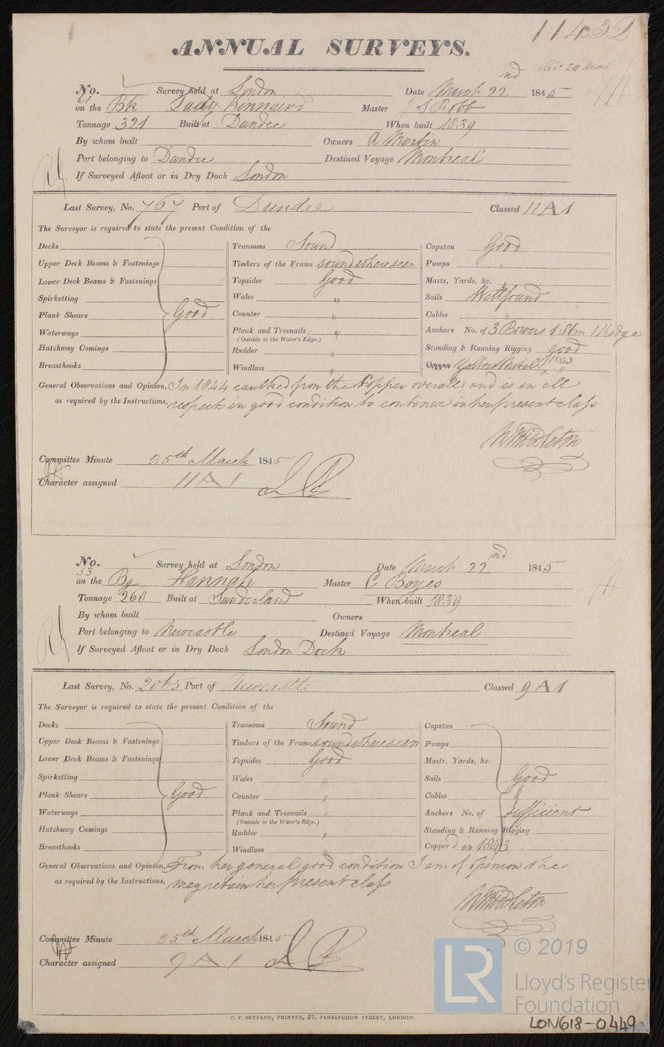 11432
ANNUAL SURVEYS.
Rec 29 Mar
No. Survey held at London Date March 22nd 1845
on the Bk Lady Kinnaird Master J S Robb
Tonnage 321 Built at Dundee When built 1839
By whom built Owners A Martin
Port belonging to Dundee Destined Voyage Montreal
If Surveyed Afloat or in Dry Dock London
Last Survey, No. 767 Port of Dundee Classed 11 A 1
The Surveyor is required to state the present Condition of the
Decks
Upper Deck Beams & Fastenings
Lower Deck Beams & Fastenings
Spirketting
Plank Shears Good
Waterways
Hatchway Comings
Breasthooks
Transoms Sound
Timbers of the Frame sound where seen
Topsides Good
Wales "
Counter "
Plank and Treenails "
(Outside to the Water's Edge.)
Rudder "
Windlass "
Capstan Good
Pumps "
Masts, Yards, &c. "
Sails Well found
Cables "
Anchors No. of 3 Bowers 1 Strm 1 Kedge
Standing & Running Rigging good
Copper Yellow Metal 1843
General Observations and Opinion, In 1844 caulked from the Copper overall, and is in all
as required by the Instructions, respects in good condition to continue in her present class
Committee Minute 25th March 1845
Character assigned 11 A 1
No. Survey held at London Date March 22nd 1845
33
on the Bg Hannah Master C Boyes
Tonnage 260 Built at Sunderland When built 1839
By whom built Owners
Port belonging to Newcastle Destined Voyage Montreal
If Surveyed Afloat or in Dry Dock London Dock
Last Survey, No. 2063 Port of Newcastle Classed 9 A 1
The Surveyor is required to state the present Condition of the
Decks
Upper Deck Beams & Fastenings
Lower Deck Beams & Fastenings
Spirketting
Plank Shears Good
Waterways
Hatchway Comings
Breasthooks
Transoms Sound
Timbers of the Frame sound where seen
Topsides Good
Wales "
Counter "
Plank and Treenails "
(Outside to the Water's Edge.)
Rudder "
Windlass "
Capstan
Pumps
Masts, Yards, &c.
Sails Good
Cables &
Anchors No. of Sufficient
Standing & Running Rigging
Copper'd in 1843
General Observations and Opinion, From her general good condition I am of Opinion she
as required by the Instructions, may retain her present class
Committee Minute 25th March 1845
Character assigned 9 A 1
C. F. SEYFANG, PRINTER, 57, FARRINGDON STREET, LONDON.
LR © 2019
Lloyd's Register
Foundation
LON618-0449